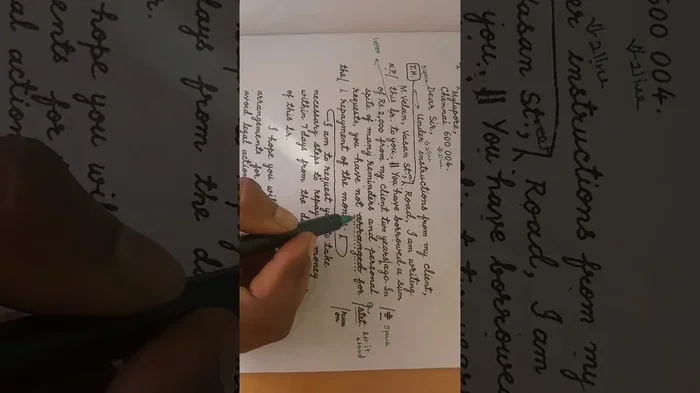 Mylapore,
Chennai 600 004.
Dear Sir,
T.H. Under instructions from my client,
M. Velan, Vasan St., Road, I am writing
N.P./ this lr. to you. || You have borrowed a sum
of Rs. 2,000 from my client two years ago. In /# space
spite of many reminders and personal
requests, you have not arranged for /stet. let it stand
the/ repayment of the money.
I am to request you to take /run on
necessary steps to repay money
within 7 days from the
of this lr.
I hope you
arrangements for
avoid legal action
600 004.
instructions from my
Vasan St., Road, I am
you. || You have borrowed
hope you
ments for
days from the